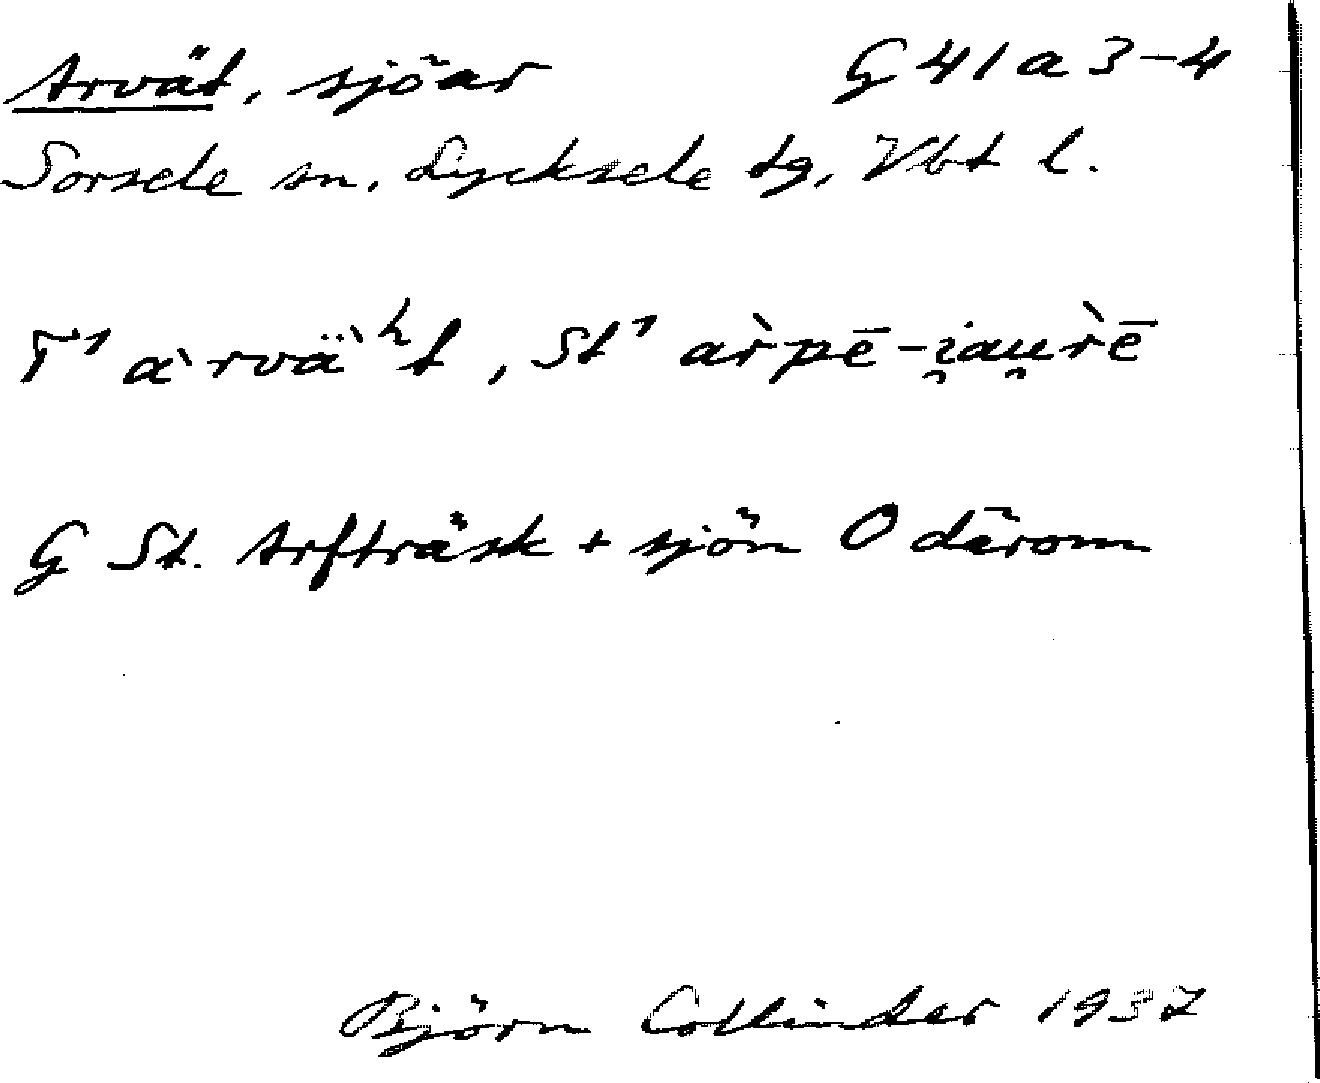 Arvät, sjöar G 41 a 3-4
Sorsele sn, Lycksele tg, Vbt l.
T¹ a`rvä`ʰt, St¹ ar̀pē-i̯au̯r̀ē
G St. Arfträsk + sjön O därom
Björn Collinder 1937